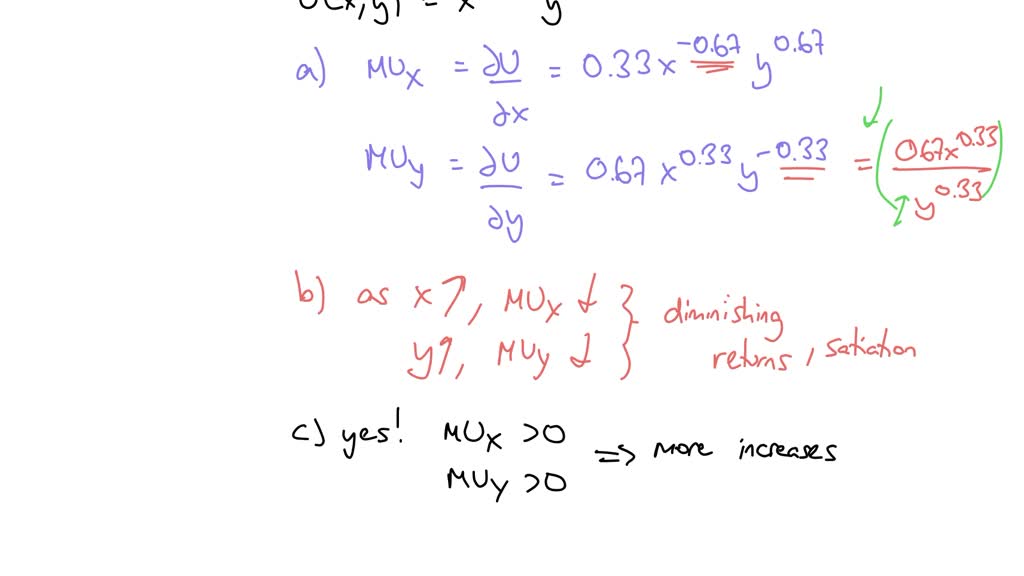 U(x,y) = x y
a) MUx = ∂U/∂x = 0.33x^-0.67 y^0.67
MUy = ∂U/∂y = 0.67 x^0.33 y^-0.33 = (0.67x^0.33 / y^0.33)
b) as x↑, MUx ↓ } diminishing
y↑, MUy ↓ } returns, satiation
c) yes! MUx >0 => more increases
MUy >0